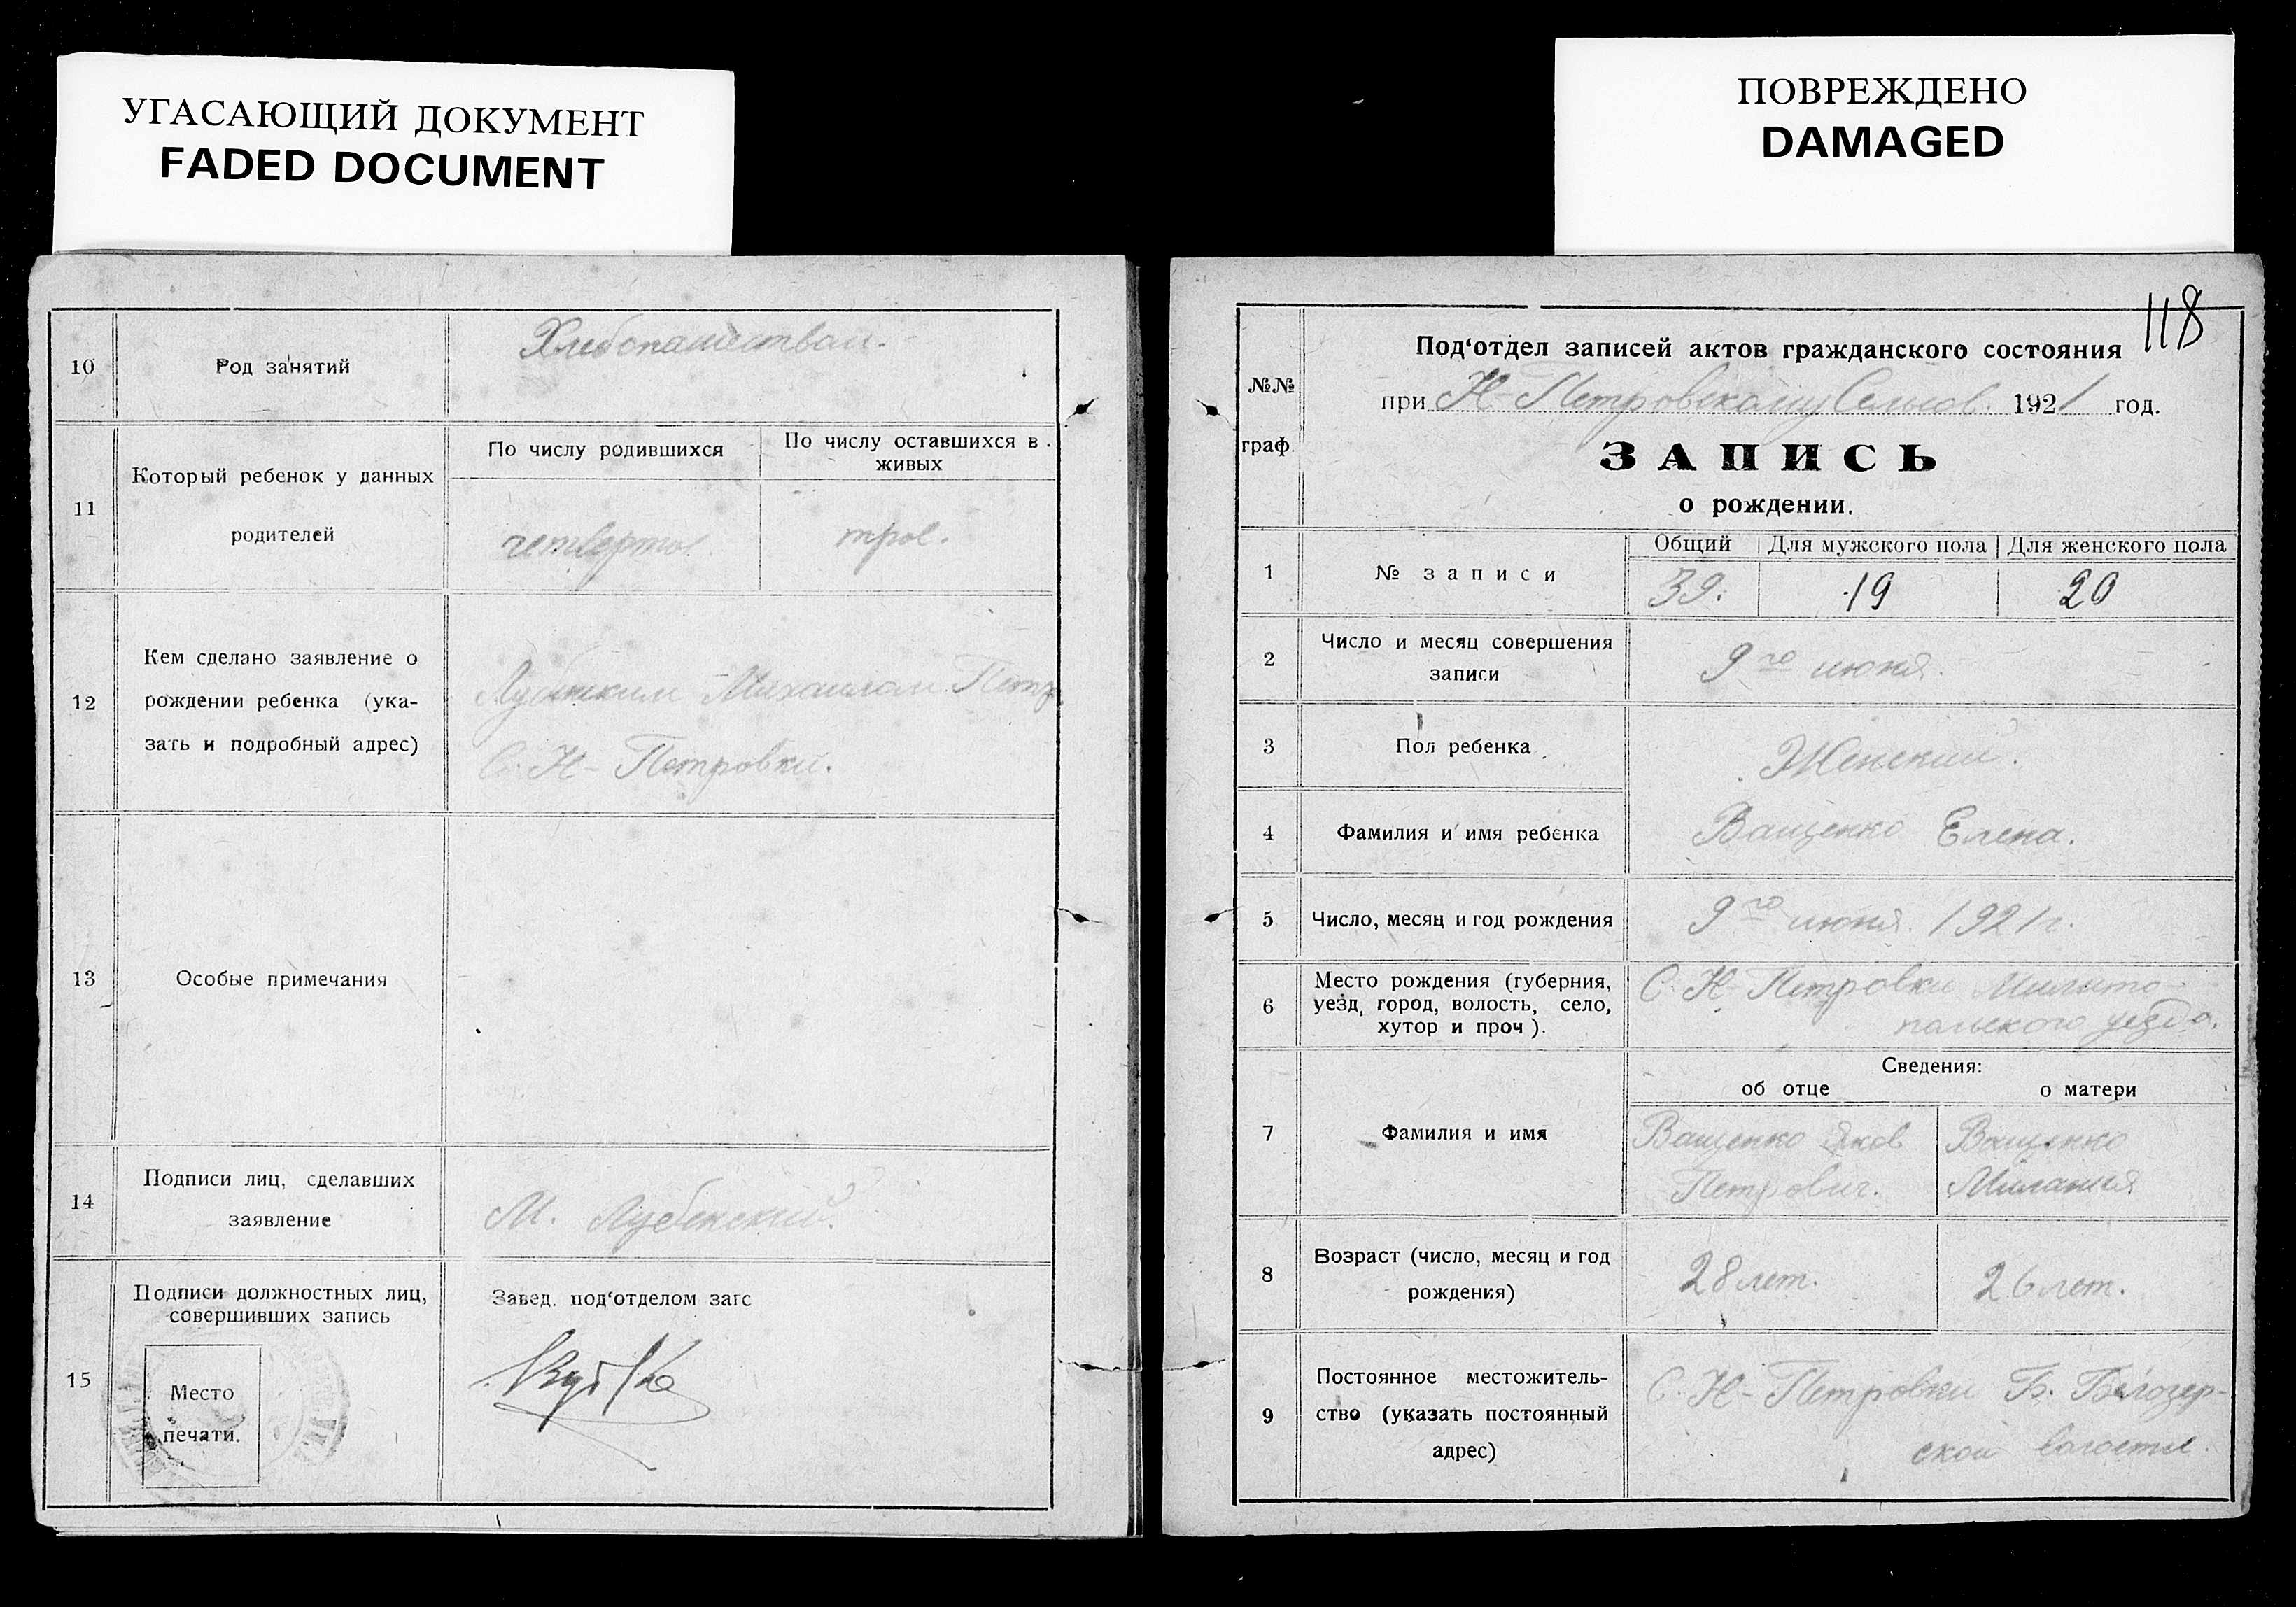 УГАСАЮЩИЙ ДОКУМЕНТ
FADED DOCUMENT
ПОВРЕЖДЕНО
DAMAGED
10
Род занятий
Хлебопашеством.
11
Который ребенок у данных
родителей
По числу родившихся
По числу оставшихся в
живых
четверты
трое.
12
Кем сделано заявление о
рождении ребенка (ука-
зать и подробный адрес)
Михаилом Петр.
С. Н-Петровки.
13
Особые примечания
14
Подписи лиц, сделавших
заявление
М. Лубенский.
15
Подписи должностных лиц,
совершивших запись
Место
печати.
Завед. под‘отделом загс
118
№№
граф.
Под‘отдел записей актов гражданского состояния
при Н-Петровскому Сельсов. 1921 год.
ЗАПИСЬ
о рождении.
1
№ записи
Общий
Для мужского пола
Для женского пола
39.
19
20
2
Число и месяц совершения
записи
9го июня.
3
Пол ребенка
Женский.
4
Фамилия и имя ребенка
Ващенко Елена.
5
Число, месяц и год рождения
9го июня. 1921 г.
6
Место рождения (губерния,
уезд, город, волость, село,
хутор и проч).
С. Н-Петровки Мелито-
польского уезда.
7
Фамилия и имя
Сведения:
об отце
о матери
Ващенко Яков
Петрович.
Ващенко
Милания
8
Возраст (число, месяц и год
рождения)
28 лет.
26 лет.
9
Постоянное местожитель-
ство (указать постоянный
адрес)
С. Н-Петровки Б. Белозер-
ской волости.